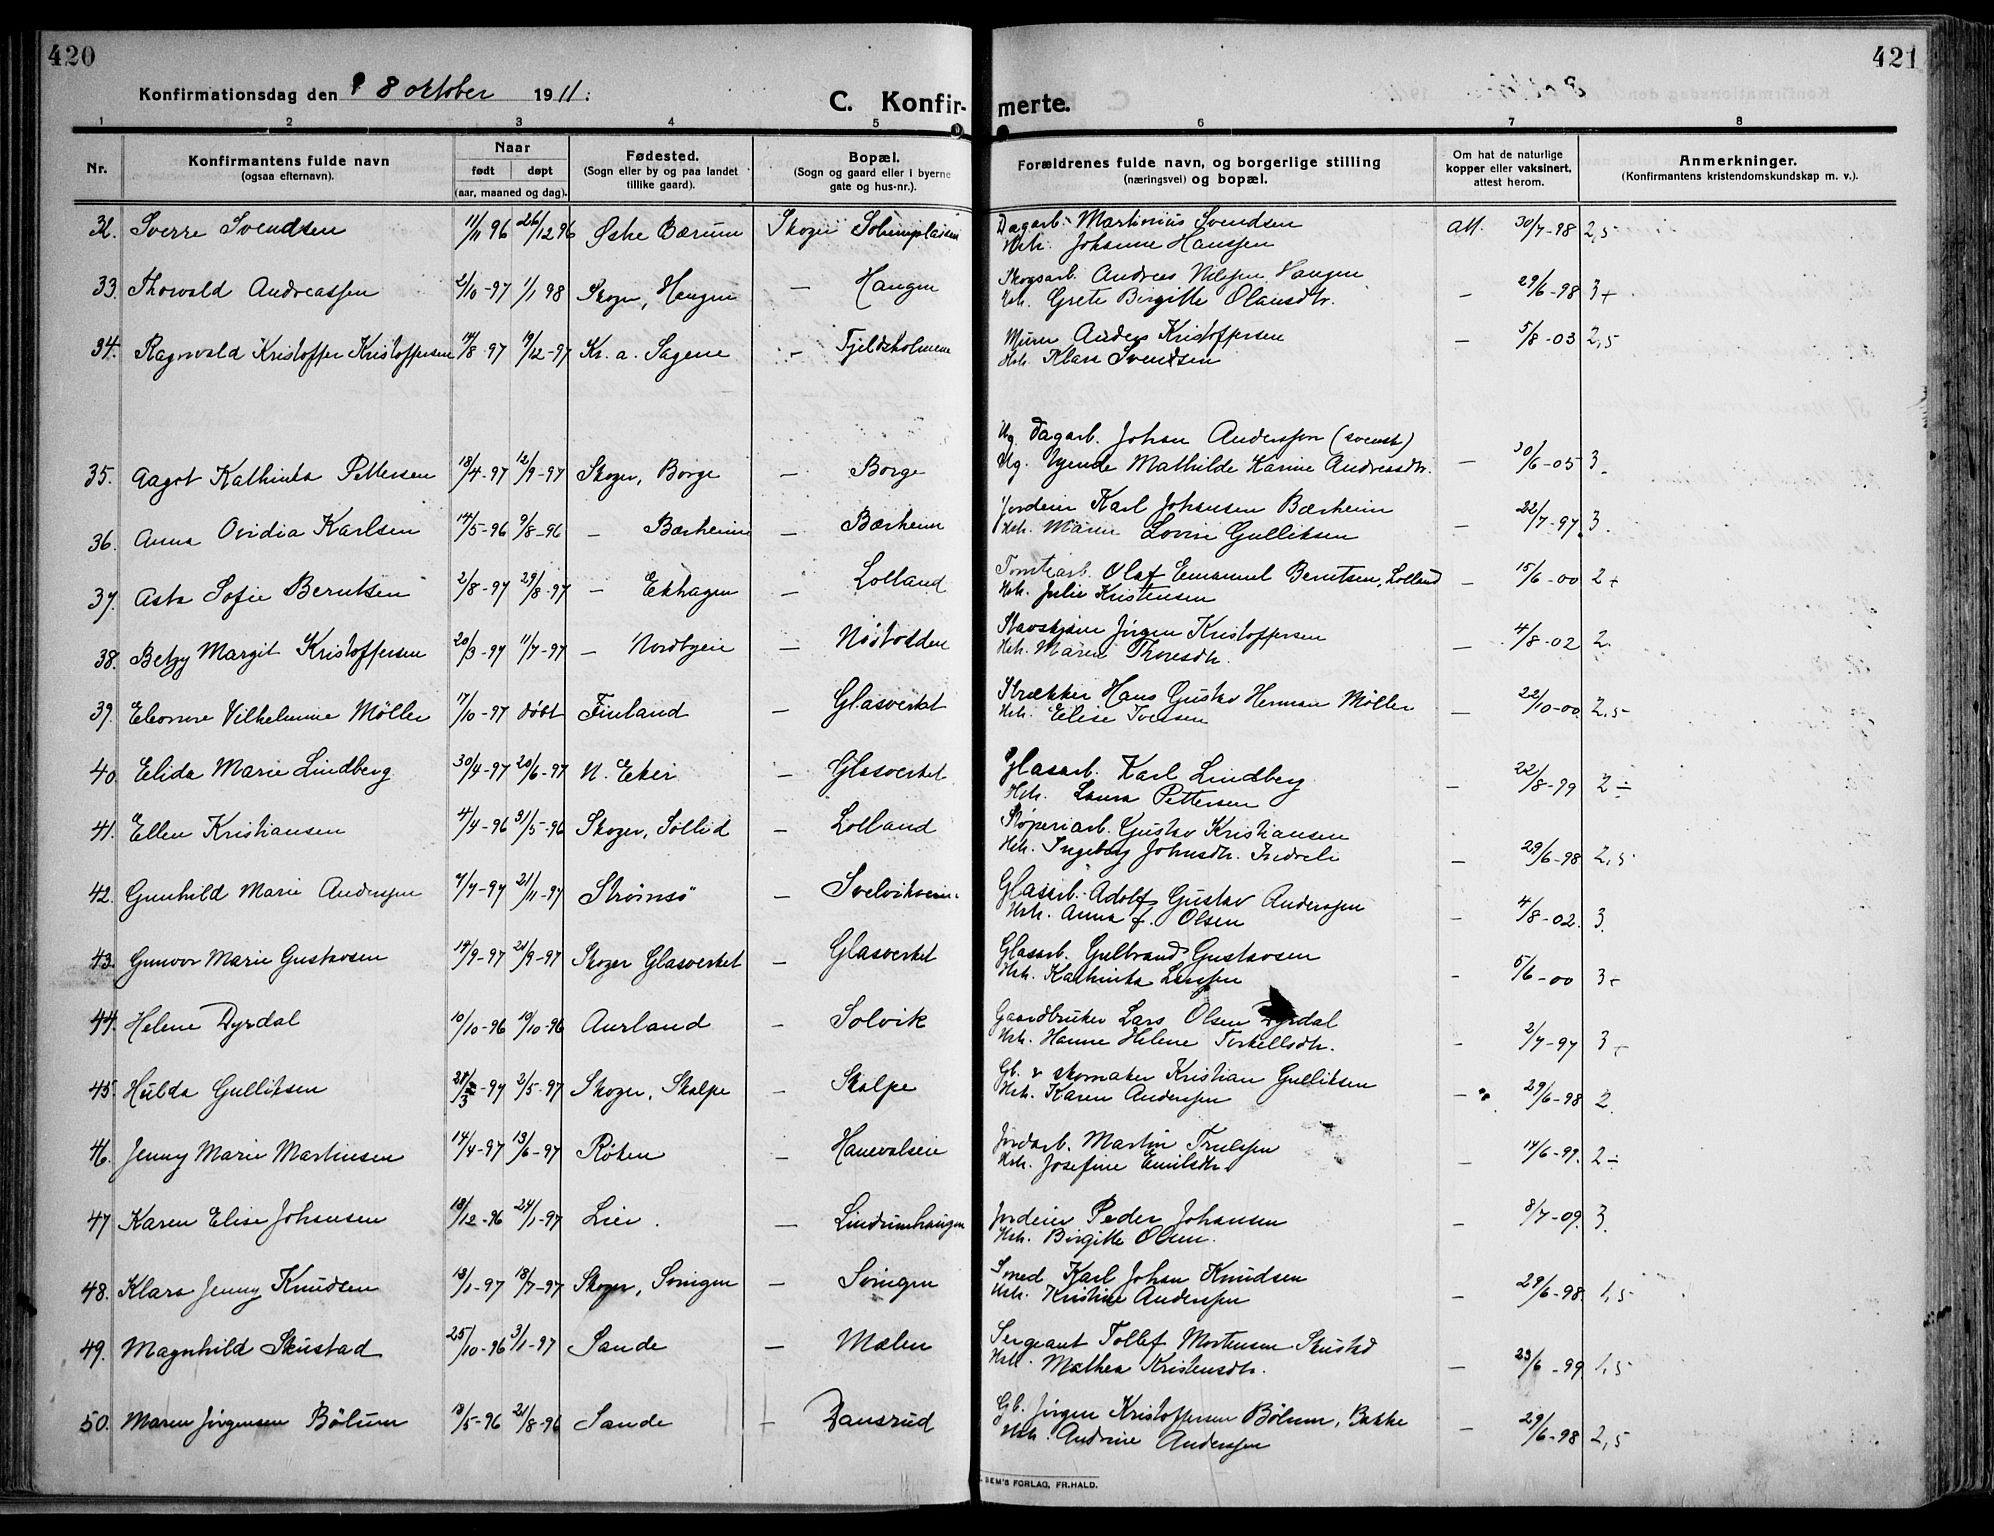 420
421
Konfirmationsdag den 8 oktober 1911.
C. Konfir- merte.
1 2 3 4 5 6 7 8
Nr. Konfirmantens fulde navn (ogsaa efternavn). Naar født døpt (aar, maaned og dag). Fødested. (Sogn eller by og paa landet tillike gaard). Bopæl. (Sogn og gaard eller i byerne gate og hus-nr.). Forældrenes fulde navn, og borgerlige stilling (næringsvei) og bopæl. Om hat de naturlige kopper eller vaksinert, attest herom. Anmerkninger. (Konfirmantens kristendomskundskap m. v.).
32. Sverre Svendsen 11/11 96 26/12 96 Østre Bærum Skoger Solumplassen Dagarb. Martinius Svendsen att. 30/7-98 2,5
Hstr. Johanne Hanssen
33. Thorvald Andreassen 2/10-97 1/1 98 Skoger, Haugen — Haugen Skogsarb. Andreas Nilssen Haugen — 29/6-98 3+
Hstr. Grete Birgitte Olausdtr.
34. Ragnvald Kristoffer Kristoffersen 14/8-97 19/12-97 Kr. a. Sagene — Fjeldsholmene Murer Anders Kristoffersen — 5/8-03 2,5
Hstr. Klara Svendsen
35. Aagot Kathinka Pettersen 18/4-97 12/9-97 Skoger, Borge — Borge Ug. dagarb. Johan Anderssen (svensk) — 30/6-05 3.
Ug. Tyende Mathilde Karine Andreasdtr.
36. Anna Ovidia Karlsen 14/5-96 9/8-96 — Bærheim — Bærheim Jordeier Karl Johansen Bærheim — 22/7-97 3.
Hstr. Maren Lovise Gulliksen
37. Asta Sofie Berntsen 2/8-97 29/8-97 — Ekhagen — Lolland Tomtearb. Olaf Emanuel Berntsen, Lolland — 15/6-00 2+
Hstr. Julie Kristensen
38. Betzy Margit Kristoffersen 20/3-97 11/7-97 — Nordbyeie — Nøstodden Stavskjærer Jörgen Kristoffersen — 4/8-02 2.
Hstr. Maren Thoresdtr.
39. Eleonore Vilhelmine Möller 17/10-97 døbt Finland — Glasverket Strækker Hans Gustav Herman Möller — 22/10-00. 2,5
Hstr. Elise Iversen
40. Elida Marie Lindberg 30/4-97 20/6-97 N. Eker — Glasverket Glasarb. Karl Lindberg — 22/8-99 2÷
Hstr. Laura Pettersen
41. Ellen Kristiansen 4/4-96 31/5-96 Skoger, Sollid — Lolland Støperiarb. Gustav Kristiansen — 29/6-98 2,5
Hstr. Ingeborg Johnsdtr.
42. Gunhild Marie Anderssen 7/7-97 21/11-97 Strømsø — Svelvikveien. Glasarb. Adolf Gustav Anderssen — 4/8-02. 3.
Hstr. Anna f. Olsen
43. Gunvor Marie Gustavsen 14/9-97 21/9-97 Skoger Glasverket — Glasverket Glasarb. Gulbrand Gustavsen — 5/6-00 3+
Hstr. Kathinka Larssen
44. Helene Dyrdal 10/10-96 19/10-96 Aurland — Solvik Gaardbruker Lars Olsen Dyrdal — 2/7-97 3+
Hstr. Hanne Helene Torkellsdtr.
45. Hulda Gulliksen 28/3-97 2/5-97 Skoger, Skalpe — Skalpe Gb. & skomaker Kristian Gulliksen — 29/6-98 2.
Hstr. Karen Anderssen
46. Jenny Marie Martinsen 14/4-97 13/6-97 Røken — Hanevoldeie Jordarb. Martin Trulssen — 14/6-99. 2÷
Hstr. Josefine Emilsdtr.
47 Karen Elise Johansen 18/12-96 24/1-97 Lier. — Lindrumhaugen Jordeier Peder Johansen — 8/7-09. 3.
Hstr. Birgitte Olsen.
48. Klara Jenny Knudsen 13/1-97 18/7-97 Skoger, Svingen — Svingen Smed Karl Johan Knudsen — 29/6-98 1,5
Hstr. Kristine Anderssen
49. Magnhild Skustad 25/10-96 3/1-97 Sande — Mælen Sergeant Tollef Mortensen Skustad — 23/6-99 1,5
Hstr. Mathea Kristensdtr.
50. Maren Jörgensen Bölum 13/5-96 2/8-96 Sande — Dansrud Gb. Jörgen Kristoffersen Bölum, Bakke — 29/6-98 2,5
Hstr. Andrine Anderssen
SEM'S FORLAG, FR.HALD.